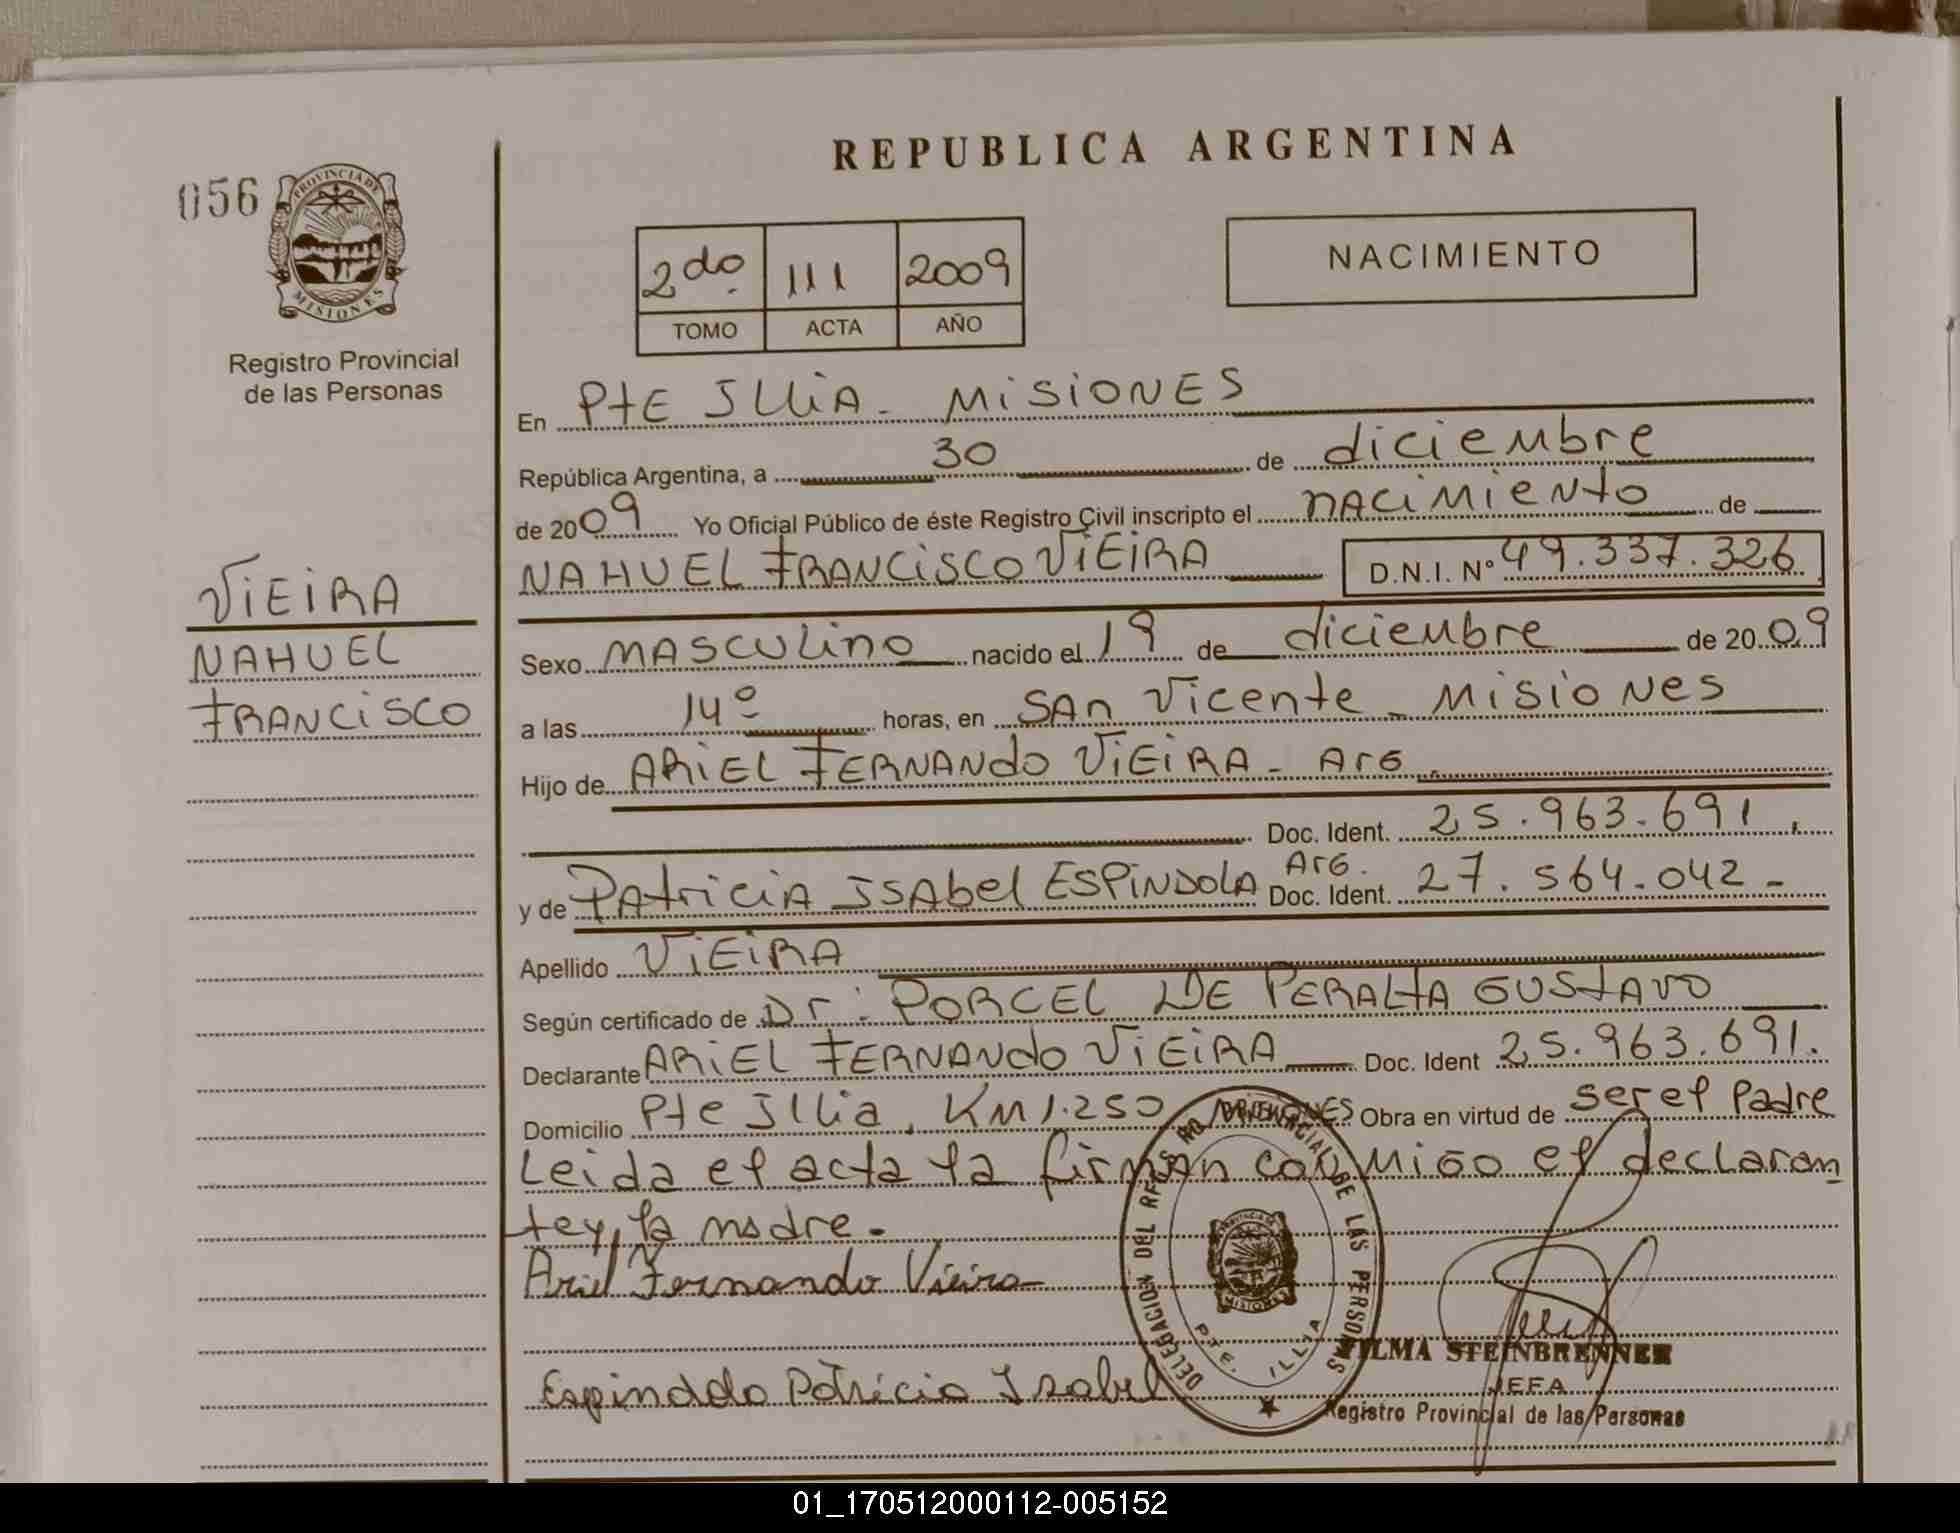 REPUBLICA ARGENTINA
056
PROVINCIA DE
MISIONES
Registro Provincial
de las Personas
2do. 111 2009
TOMO ACTA AÑO
NACIMIENTO
VIEIRA
NAHUEL
FRANCISCO
En Pte Illia - Misiones
República Argentina, a 30 de diciembre
de 2009 Yo Oficial Público de éste Registro Civil inscripto el nacimiento de
NAHUEL FRANCISCO VIEIRA D.N.I. Nº 49.337.326
Sexo MASCULINO nacido el 19 de diciembre de 2009
a las 14º horas, en San Vicente - Misiones
Hijo de ARIEL FERNANDO VIEIRA - Arg
Doc. Ident. 25.963.691.
y de Patricia Isabel ESPINDOLA Arg. Doc. Ident. 27.564.042-
Apellido VIEIRA
Según certificado de Dr: PORCEL DE PERALTA GUSTAVO
Declarante ARIEL FERNANDO VIEIRA Doc. Ident 25.963.691.
Domicilio Pte Illia, KM 1.250, Misiones Obra en virtud de ser el Padre
Leida el acta la firman conmigo el declaran
te y la madre.
Ariel Fernando Vieira
Espindola Patricia Isabel
DELEGACION DEL REGISTRO PROVINCIAL DE LAS PERSONAS
PROVINCIA DE
MISIONES
PTE. ILLIA
STEINBRENNER
JEFA
Registro Provincial de las Personas
01_170512000112-005152